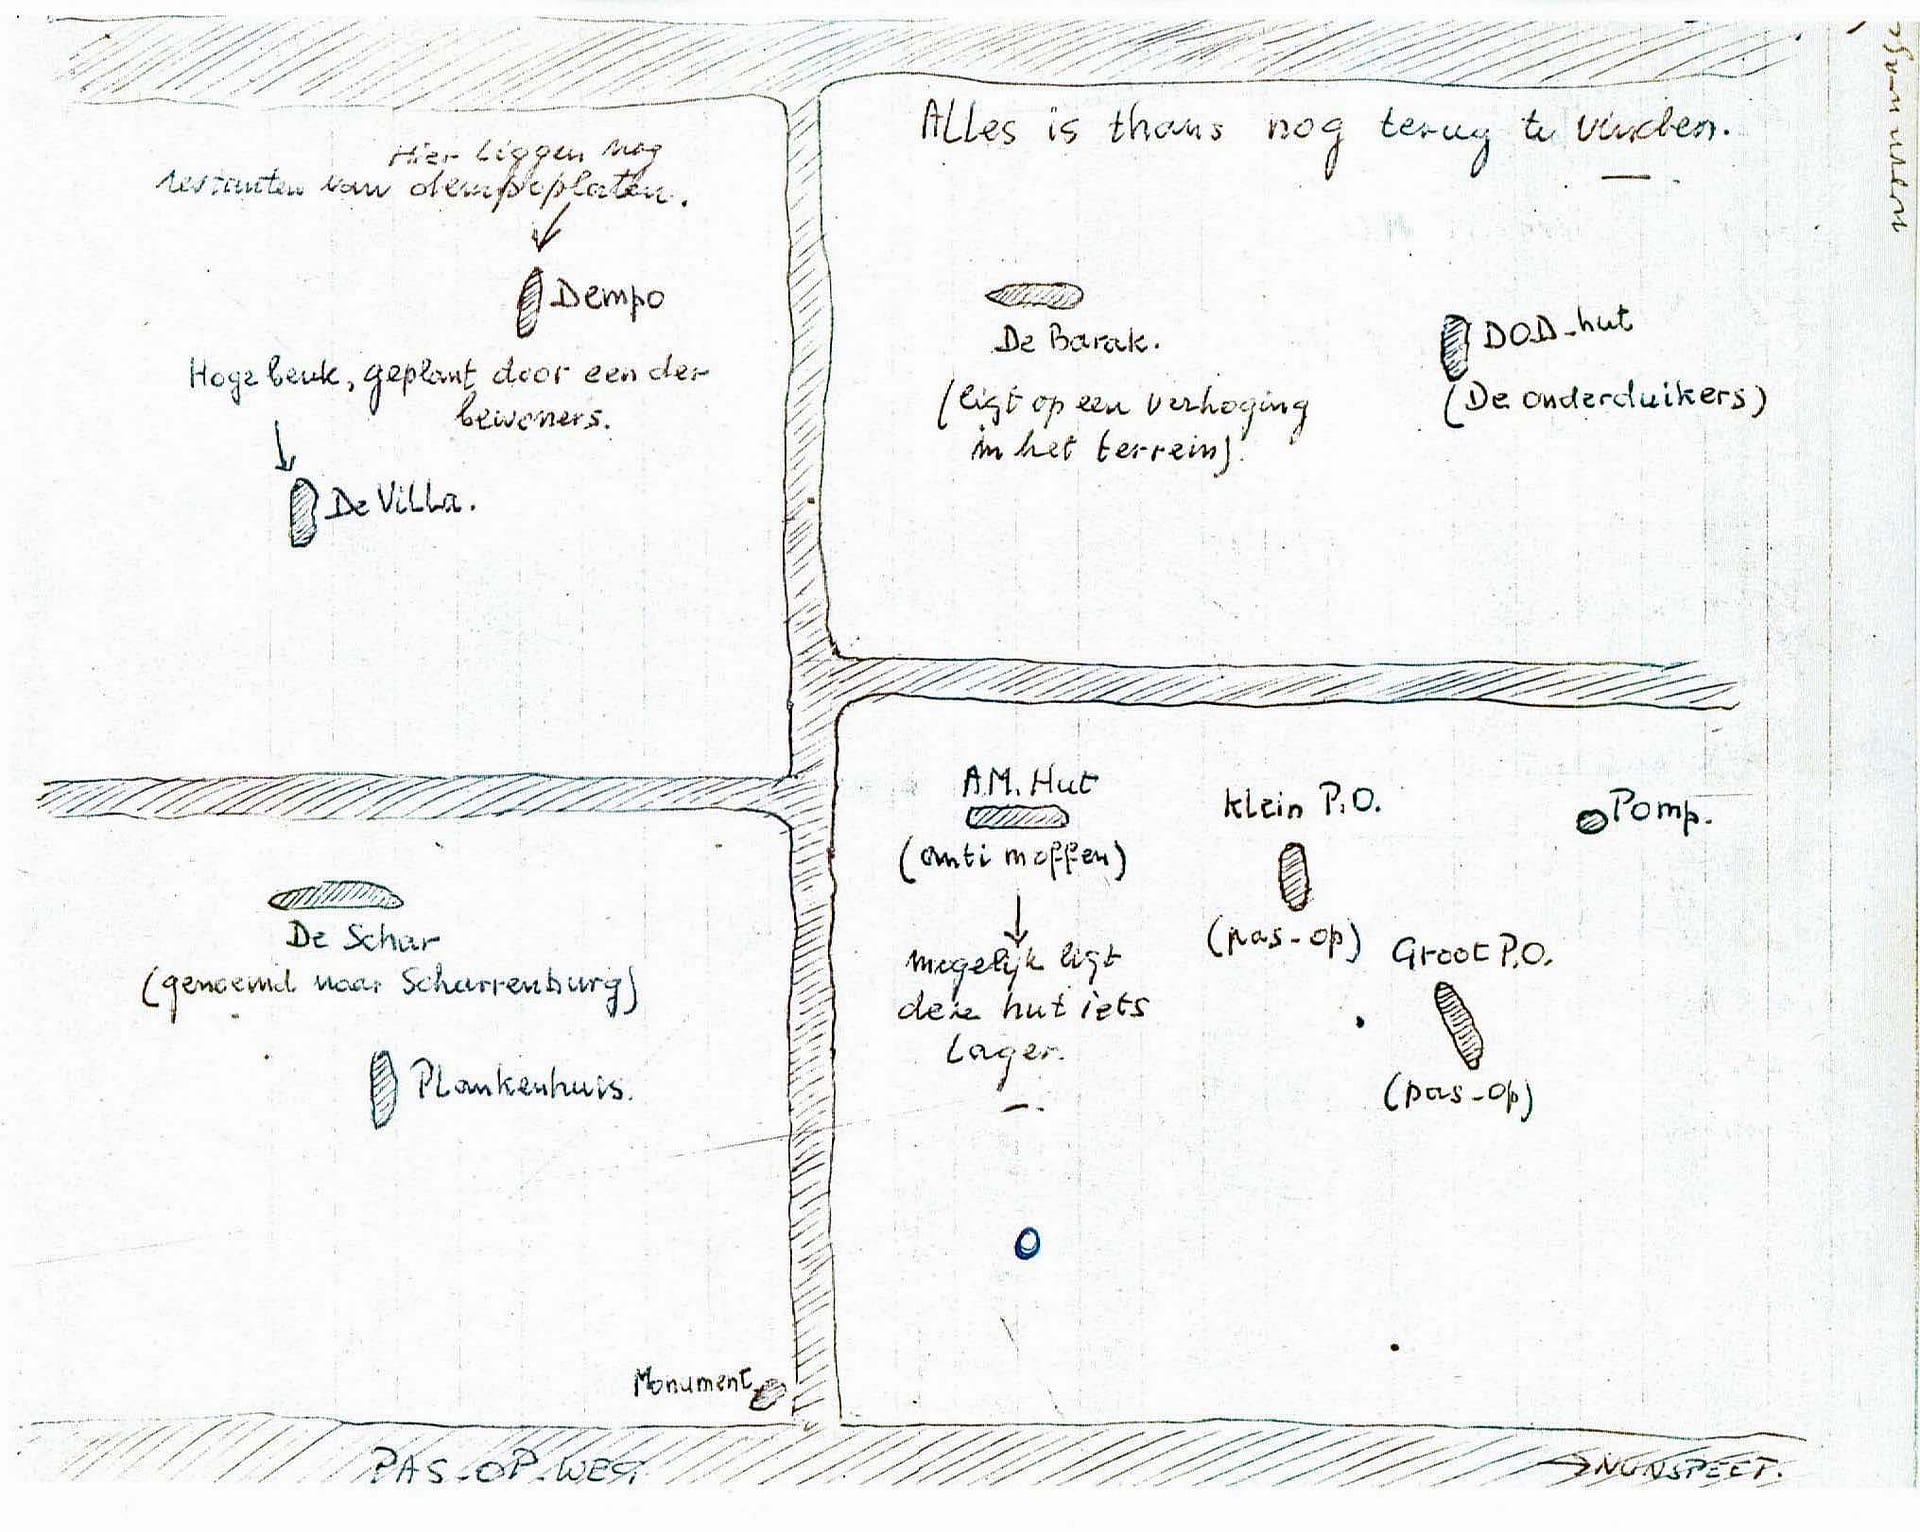 Alles is thans nog terug te vinden.
Hier liggen nog
restanten van dempoplaten.
Dempo
Hoge beuk, geplant door een der
bewoners.
De Villa.
De Barak.
(ligt op een verhoging
in het terrein).
DOD-hut
(De onderduikers)
A.M. Hut
(anti moffen)
mogelijk ligt
deze hut iets
lager.
Klein P.O.
(pas-op)
Groot P.O.
(pas-op)
Pomp.
De Schar
(genoemd naar Scharrenburg)
Plankenhuis.
Monument
PAS-OP-WEG
NUNSPEET.